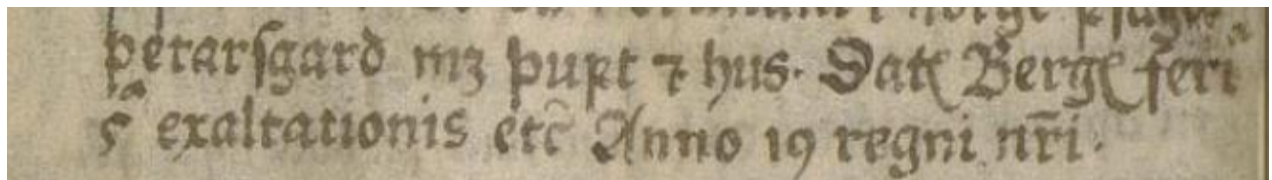 petarsgard mꝫ þupt ⁊ hus. Datꝭ Bergꝭ feri
5ᵃ exaltationis etc̄ Anno 19 regni nr̄i.